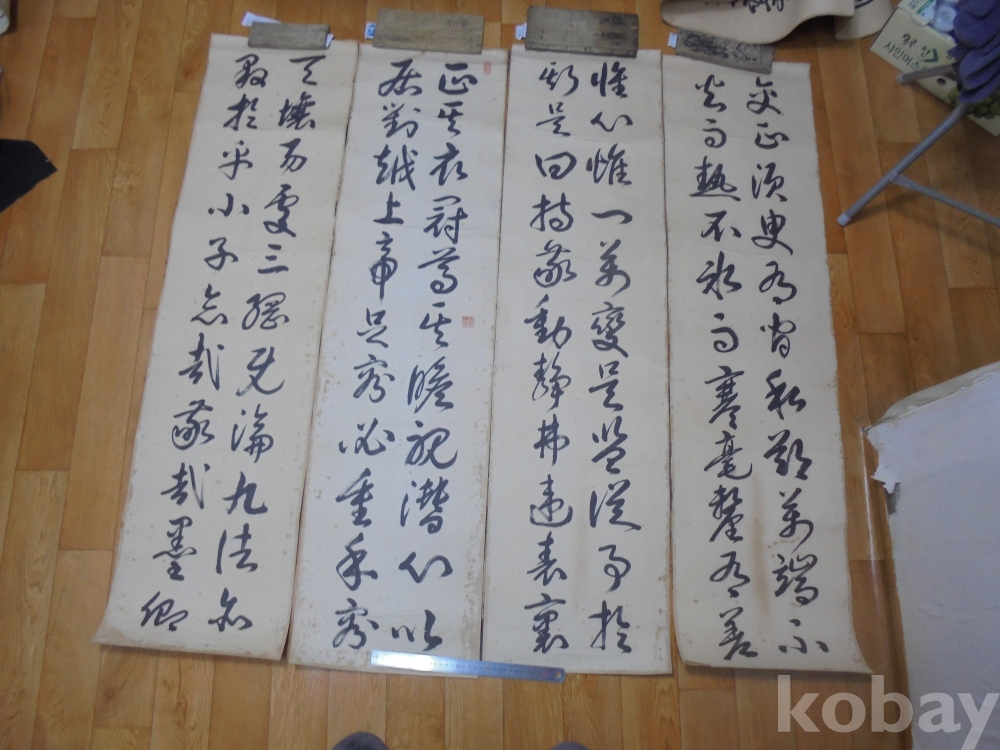 交正須臾有間私欲萬端不
火而熱不冰而寒毫釐有差
惟心惟一萬變是監從事於
斯是曰持敬動靜弗違表裏
正其衣冠尊其瞻視潛心以
居對越上帝足容必重手容
天壤易處三綱既淪九法亦
斁於乎小子念哉敬哉墨卿
샤인머스
kobay